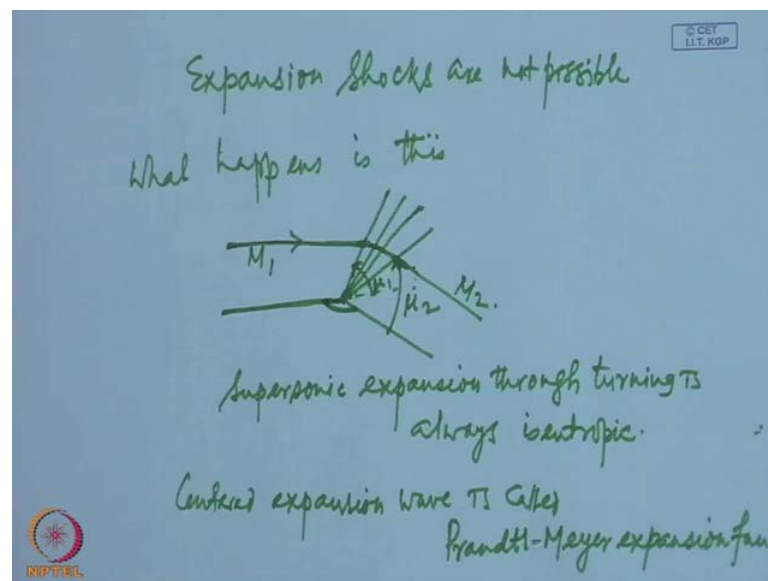 © CET
I.I.T. KGP
Expansion Shocks are not possible
What happens is this
M1
μ1
μ2
M2.
Supersonic expansion through turning is
always isentropic.
Centered expansion wave is called
Prandtl-Meyer expansion fan
NPTEL